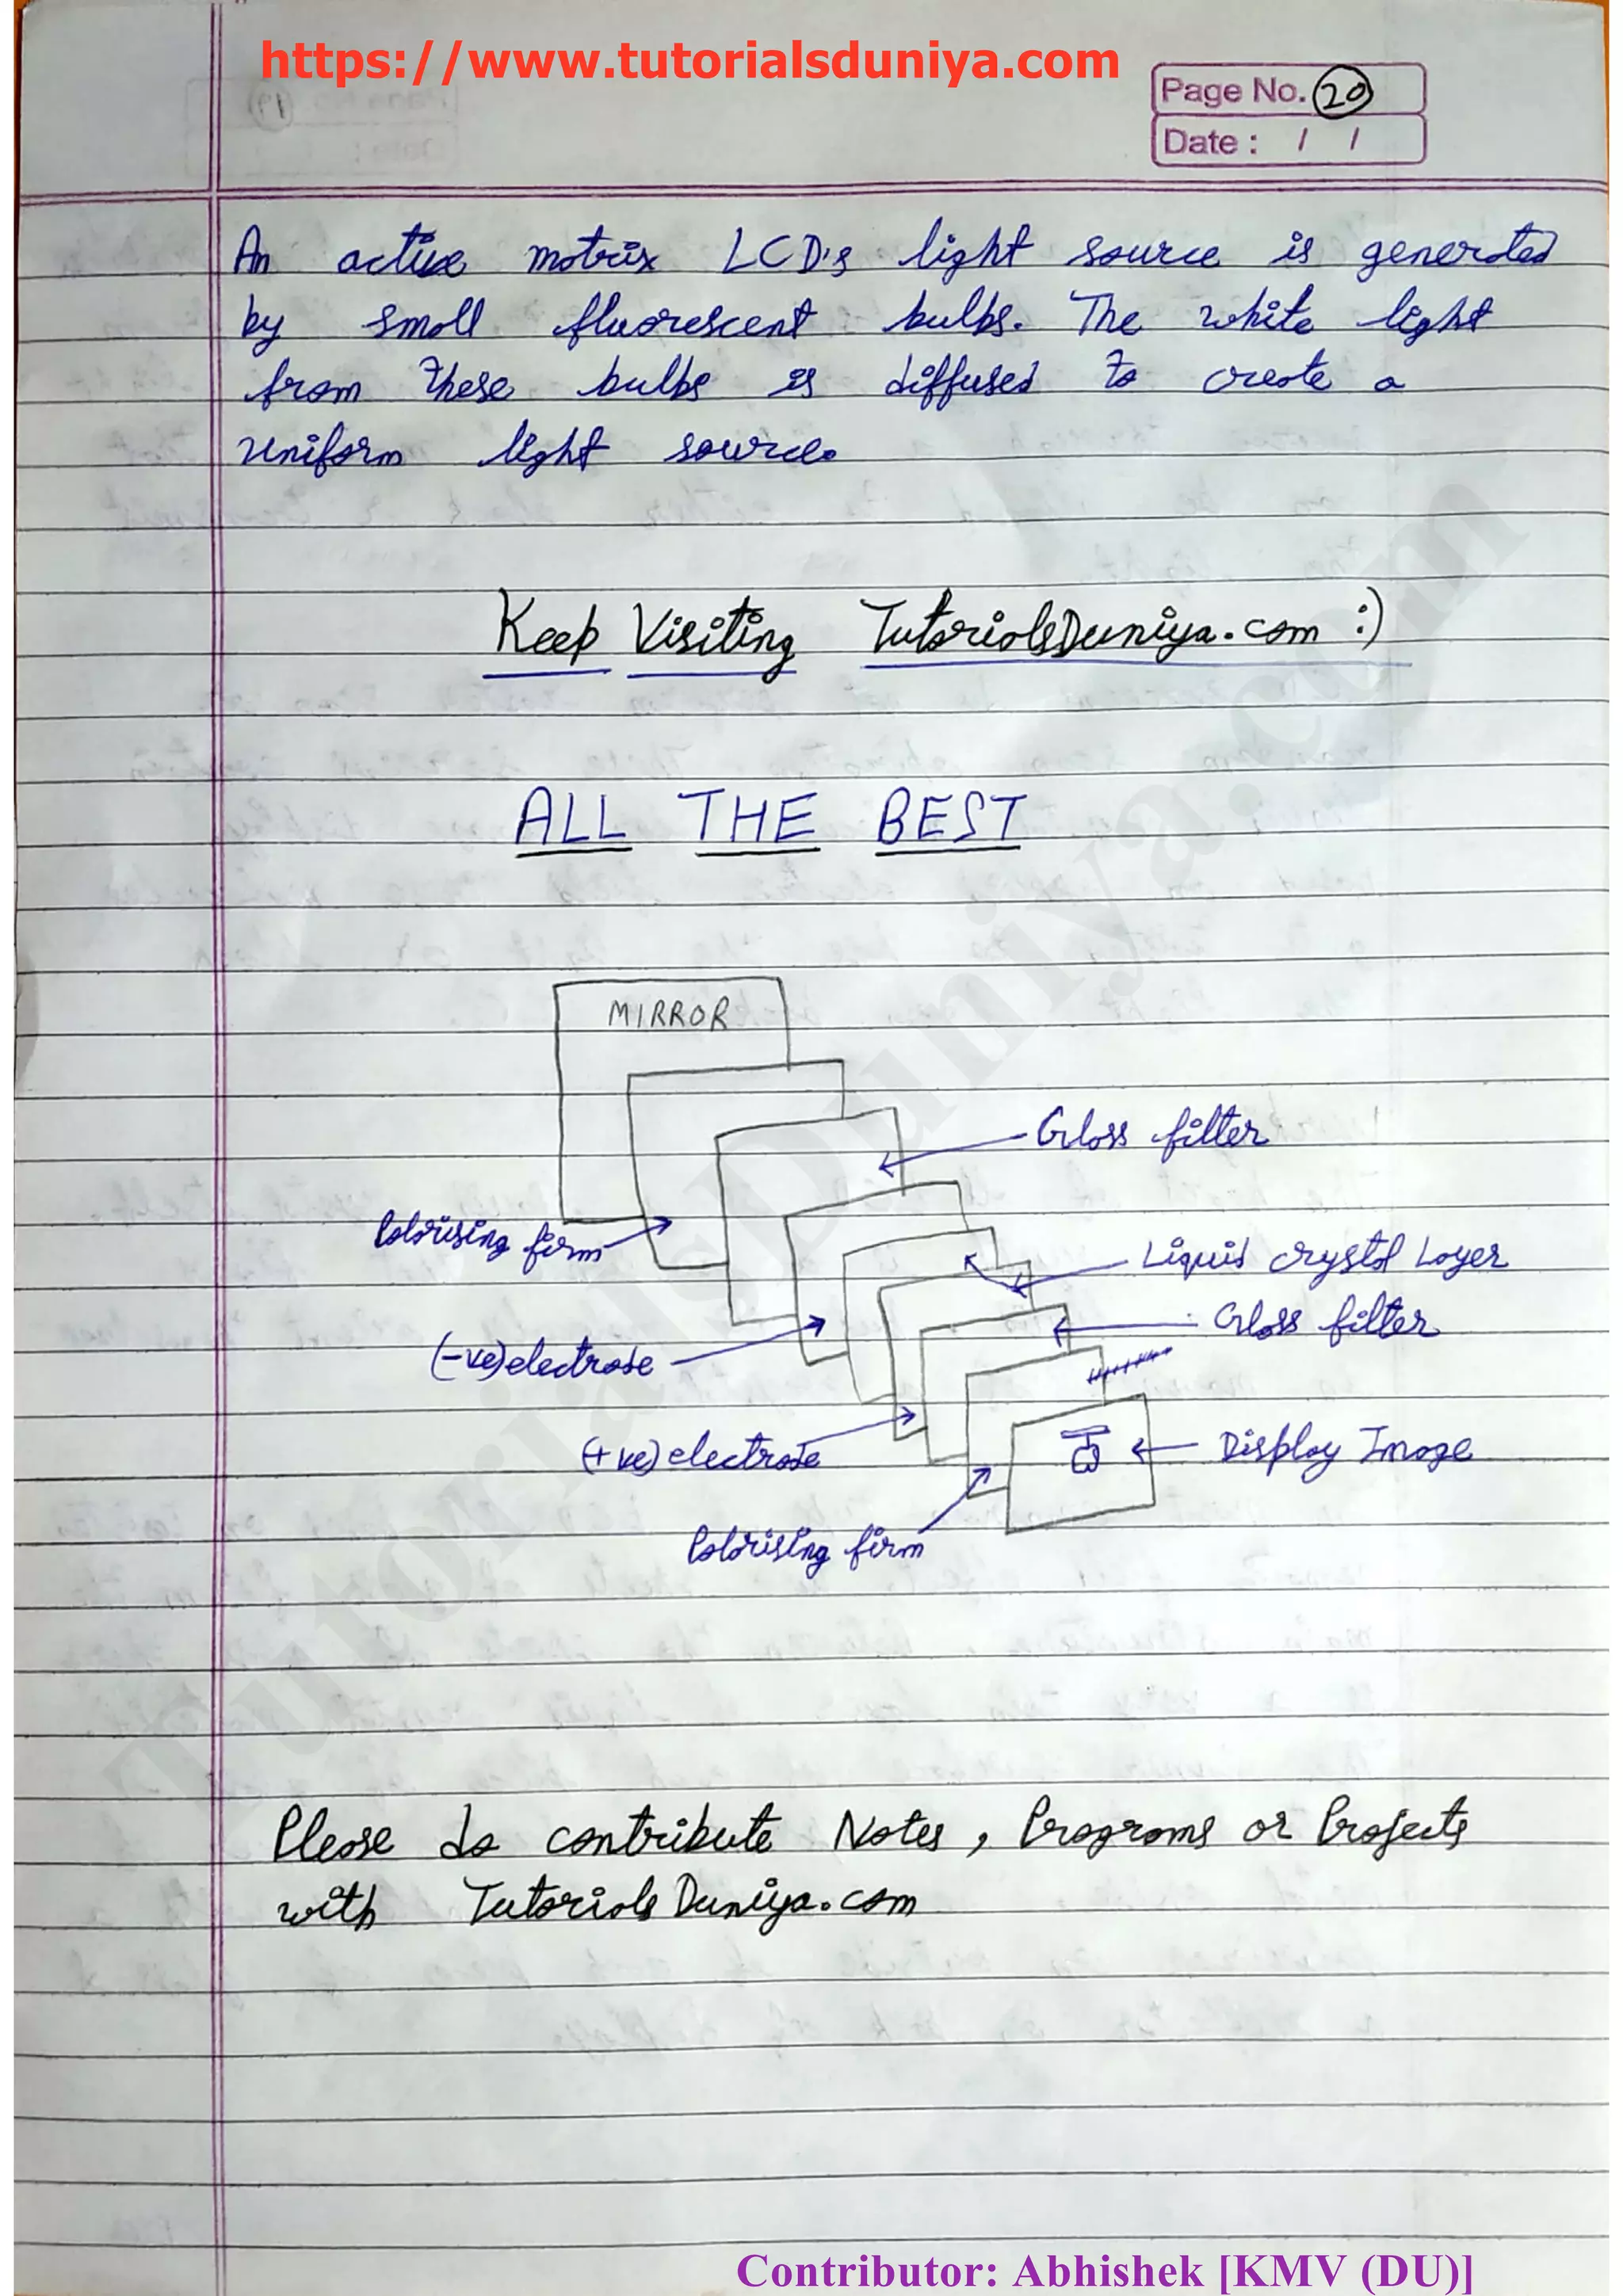 https://www.tutorialsduniya.com
Page No. 20
Date : / /
An active matrix LCD's light source is generated
by small fluorescent bulbs. The white light
from these bulbs is diffused to create a
uniform light source.
Keep Visiting TutorialsDuniya.com :)
ALL THE BEST
MIRROR
Glass filter
Polorising firm
Liquid crystal Layer
Glass filter
(-ve) electrode
(+ve) electrode
Display Image
Polorising firm
Please do contribute Notes, Programs or Projects
with TutorialsDuniya.com
TutorialsDuniya.com
Contributor: Abhishek [KMV (DU)]